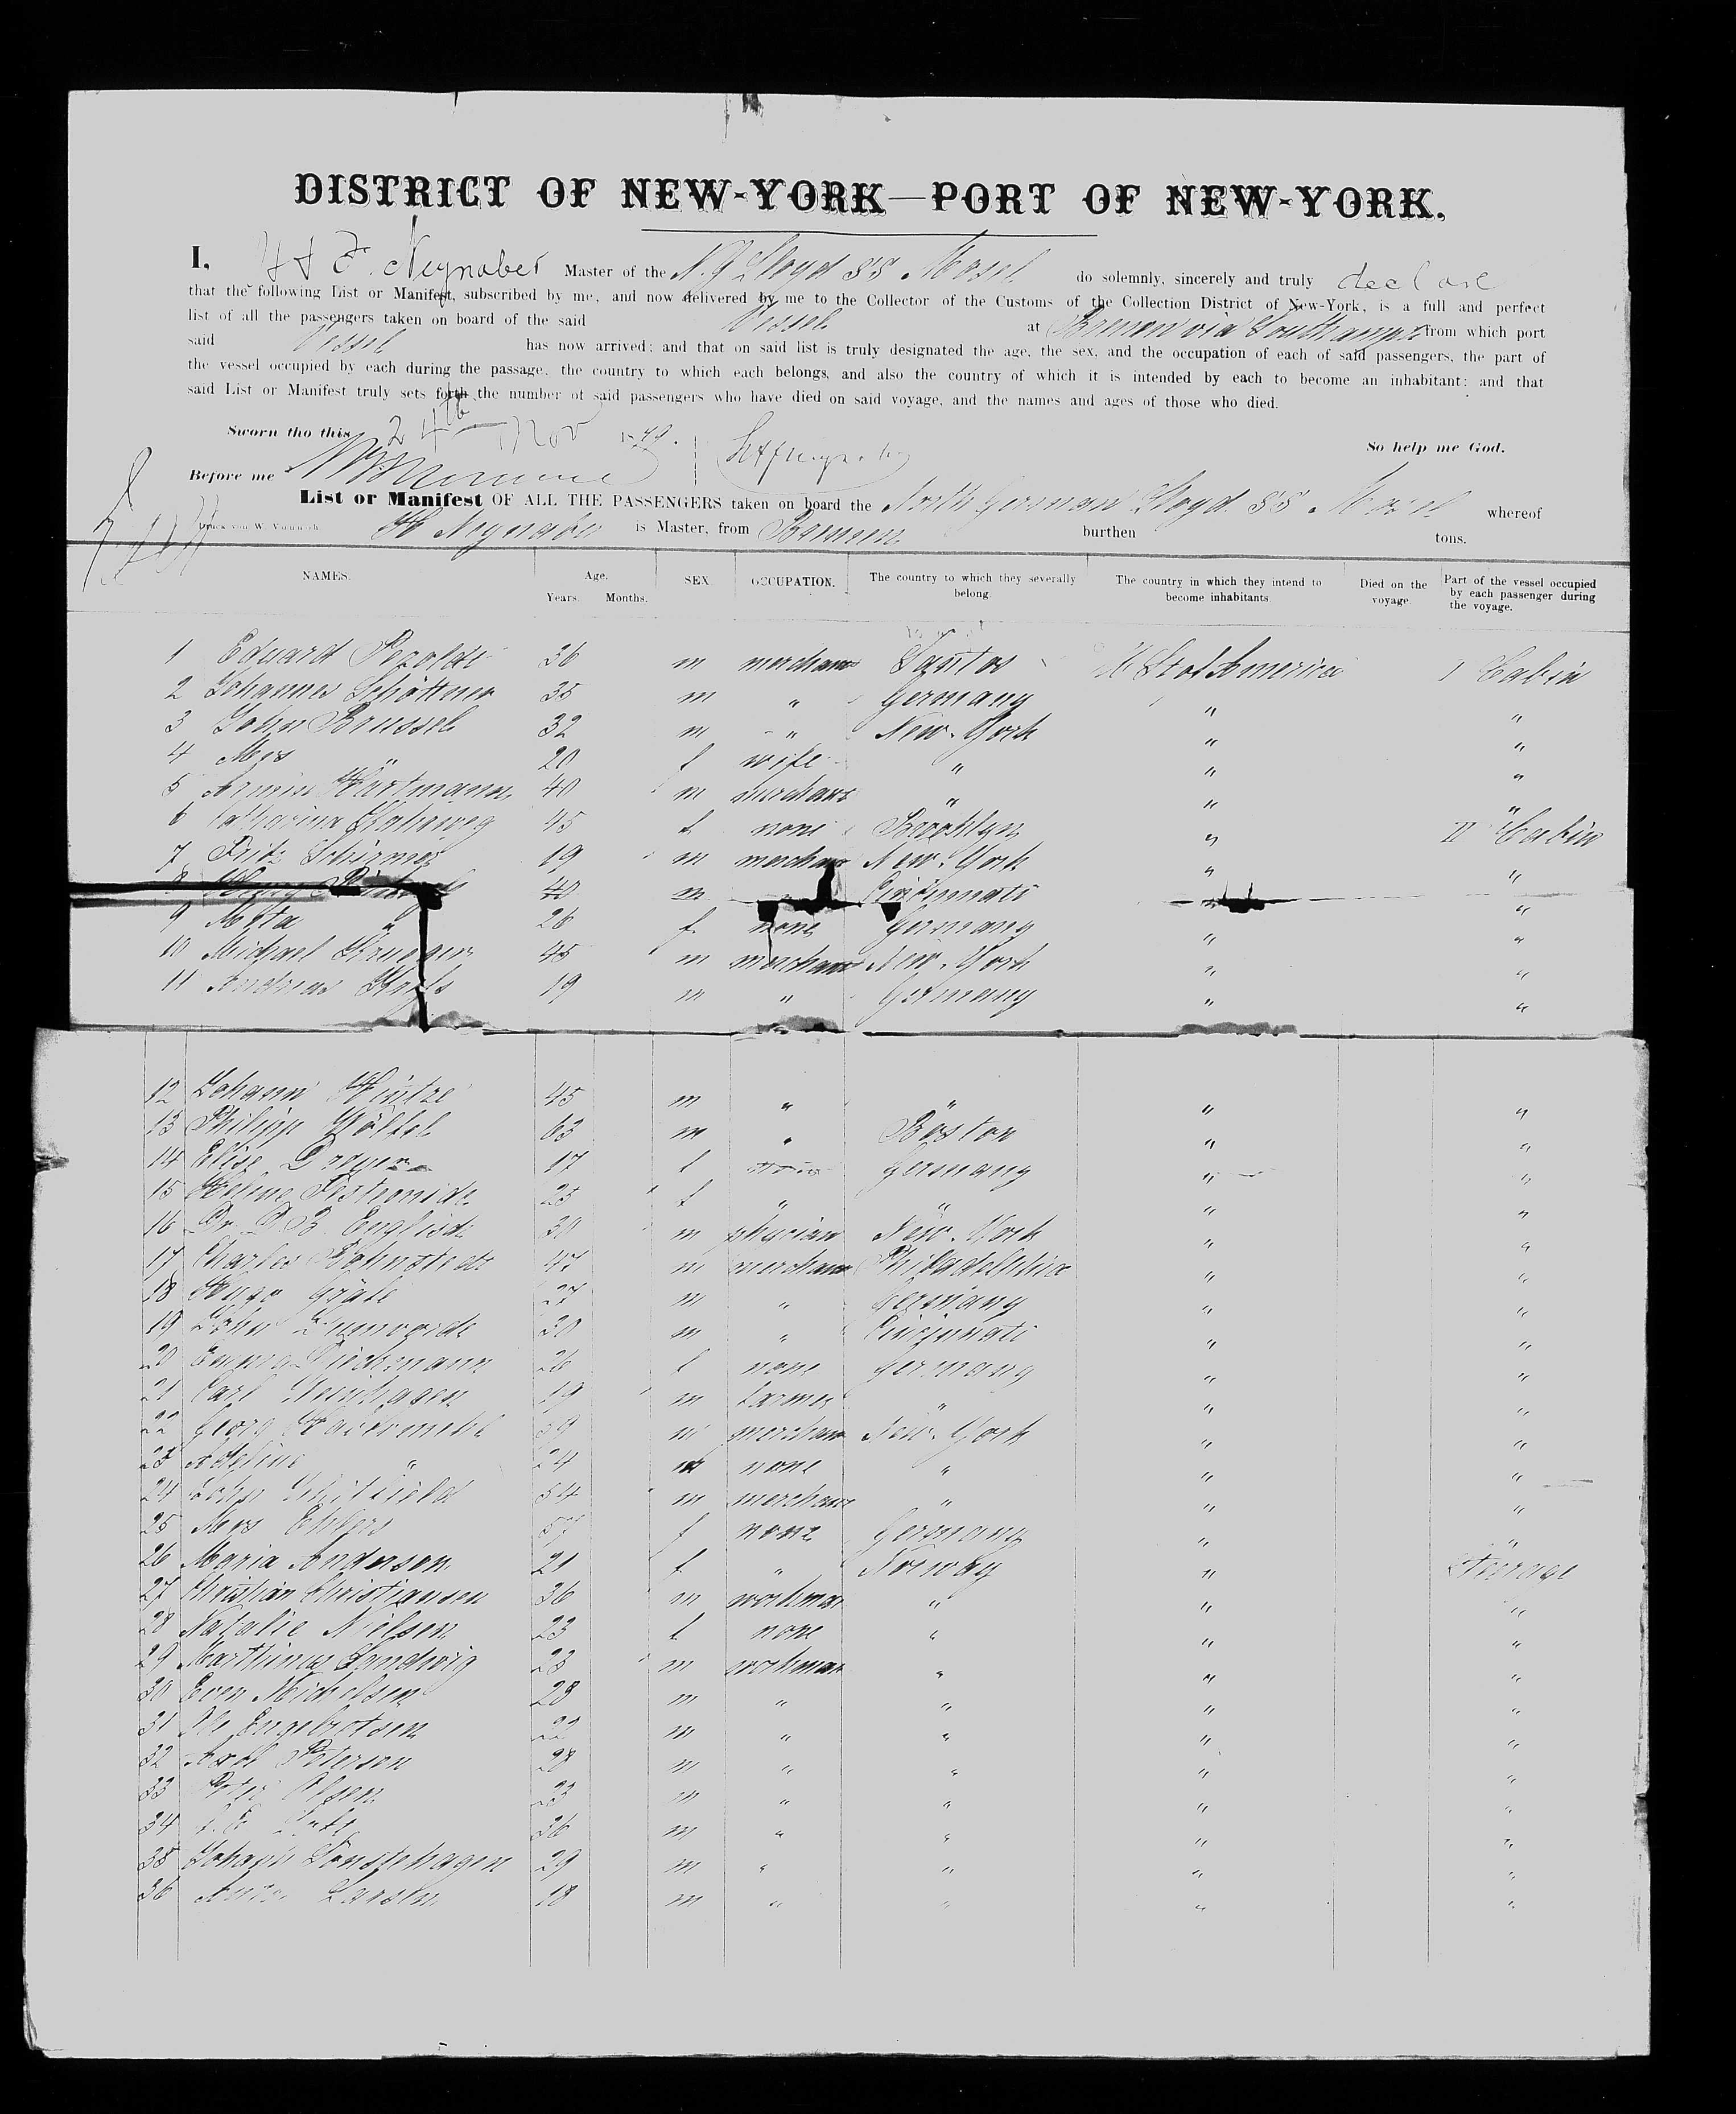 DISTRICT OF NEW-YORK—PORT OF NEW-YORK.
I, H F. Neynaber Master of the N. G Lloyd SS Mosel do solemnly, sincerely and truly declare
that the following List or Manifest, subscribed by me, and now delivered by me to the Collector of the Customs of the Collection District of New-York, is a full and perfect
list of all the passengers taken on board of the said Vessel at Bremen via Southampt from which port
said Vessel has now arrived; and that on said list is truly designated the age, the sex, and the occupation of each of said passengers, the part of
the vessel occupied by each during the passage, the country to which each belongs, and also the country of which it is intended by each to become an inhabitant; and that
said List or Manifest truly sets forth the number of said passengers who have died on said voyage, and the names and ages of those who died.
Sworn tho this 24th Nov 1879. So help me God.
Before me
List or Manifest OF ALL THE PASSENGERS taken on board the North German Lloyd SS Mosel whereof
H Neynaber is Master, from Bremen burthen tons.
NAMES. Age. Years. Months. SEX OCCUPATION. The country to which they severally belong. The country in which they intend to become inhabitants. Died on the voyage. Part of the vessel occupied by each passenger during the voyage.
1 Eduard Pezoldt 36 m merchant Santos U St of America I Cabin
2 Johannes 35 m " Germany " "
3 John Brussel 32 m " New-York " "
4 Mrs " 20 f wife " " "
5 Armin Hartmann 40 m merchant " " "
6 Catharina 45 f none Brooklyn " II Cabin
7 Fritz Schirmer 19 m merchant New-York " "
8 40 m Cincinnati " "
9 Meta " 26 f none Germany " "
10 Michael Krueger 45 m merchant New-York " "
11 Andreas 19 m " Germany " "
12 Johann Hintze 45 m " " " "
13 Philipp Wölfel 63 m " Boston " "
14 Elise Dreyer 17 f none Germany " "
15 Helene 25 f " " " "
16 Dr. D. B. English 30 m physician New-York " "
17 Charles Rohnstedt 47 m merchant Philadelphia " "
18 Hugo Gräfe 27 m " Germany " "
19 John 30 m " Cincinnati " "
20 Emma Dieckmann 26 f none Germany " "
21 Carl Steinhagen 19 m farmer " " "
22 Georg 59 m merchant New-York " "
23 Adeline " 24 none " " "
24 John Whitfield 54 m merchant " " "
25 Mrs Ehlers 57 f none Germany " "
26 Maria Anderson 21 f " Norway " Steerage
27 Christian Christiansen 36 m workman " " "
28 Natalie Nielsen 23 f none " " "
29 Marthinus 23 m workman " " "
30 Even Michelsen 28 m " " " "
31 Ole Engebretsen 22 m " " " "
32 Axel Peterson 28 m " " " "
33 Peter Olsen 23 m " " " "
34 36 m " " " "
35 Johann 29 m " " " "
36 Larsen 18 m " " " "